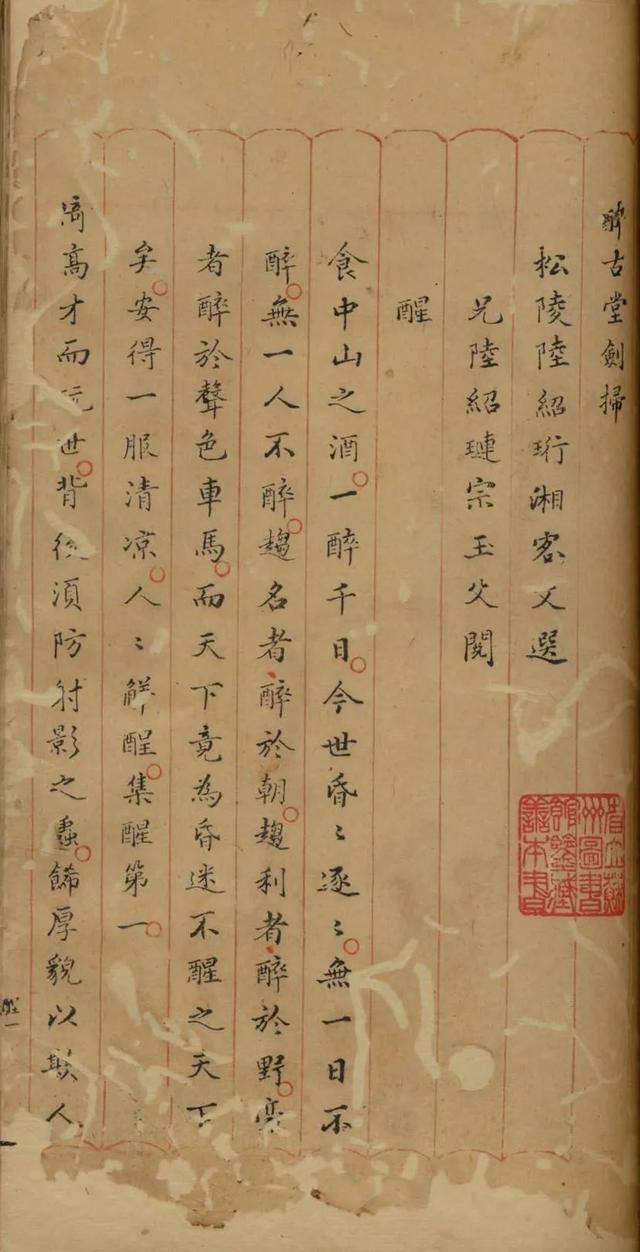 醉古堂劍掃
松陵陸紹珩湘客父選
兄陸紹璉宗玉父閱
醒
食中山之酒一醉千日今世昏〻逐〻無一日不
醉無一人不醉趨名者醉於朝趨利者醉於野豪
者醉於聲色車馬而天下竟為昏迷不醒之天下
矣安得一服清凉人〻解醒集醒第一
倚高才而玩世背後須防射影之蟲飾厚貌以欺人
省立蘇
州圖書
館鑒藏
善本書